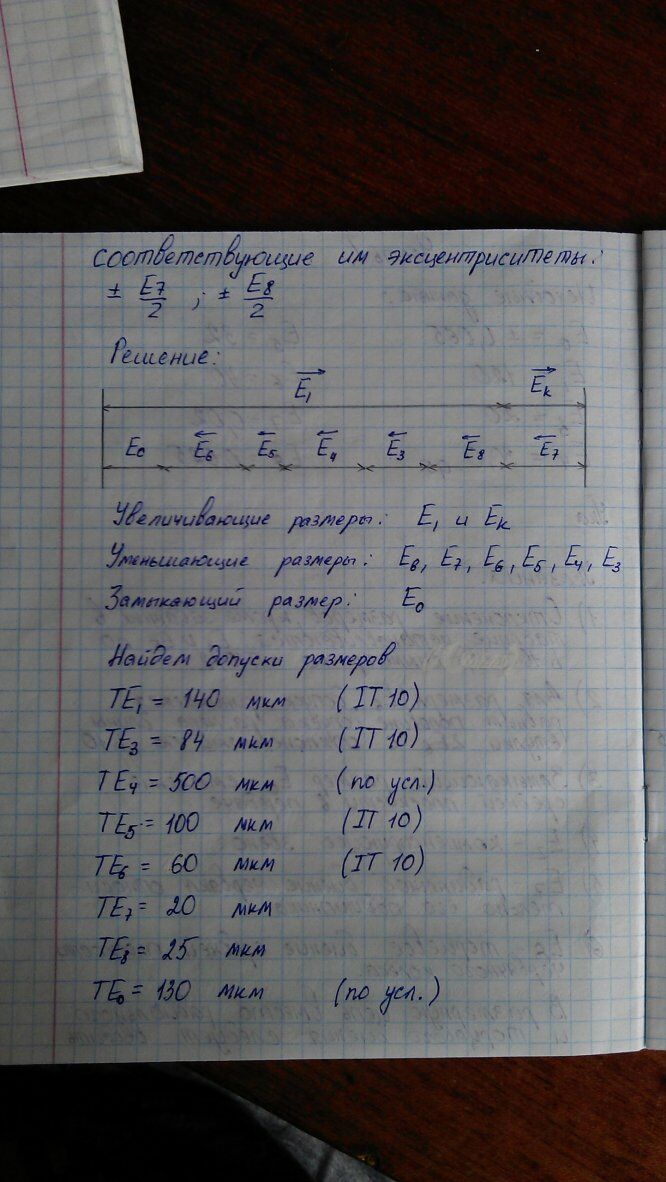 соответствующие им эксцентриситеты:
± E7/2 ; ± E8/2
Решение:
E1 Eк
E0 E6 E5 E4 E3 E8 E7
Увеличивающие размеры: E1 и Eк
Уменьшающие размеры: E8, E7, E6, E5, E4, E3
Замыкающий размер: E0
Найдем допуски размеров
TE1 = 140 мкм (IT 10)
TE3 = 84 мкм (IT 10)
TE4 = 500 мкм (по усл.)
TE5 = 100 мкм (IT 10)
TE6 = 60 мкм (IT 10)
TE7 = 20 мкм
TE8 = 25 мкм
TE0 = 130 мкм (по усл.)